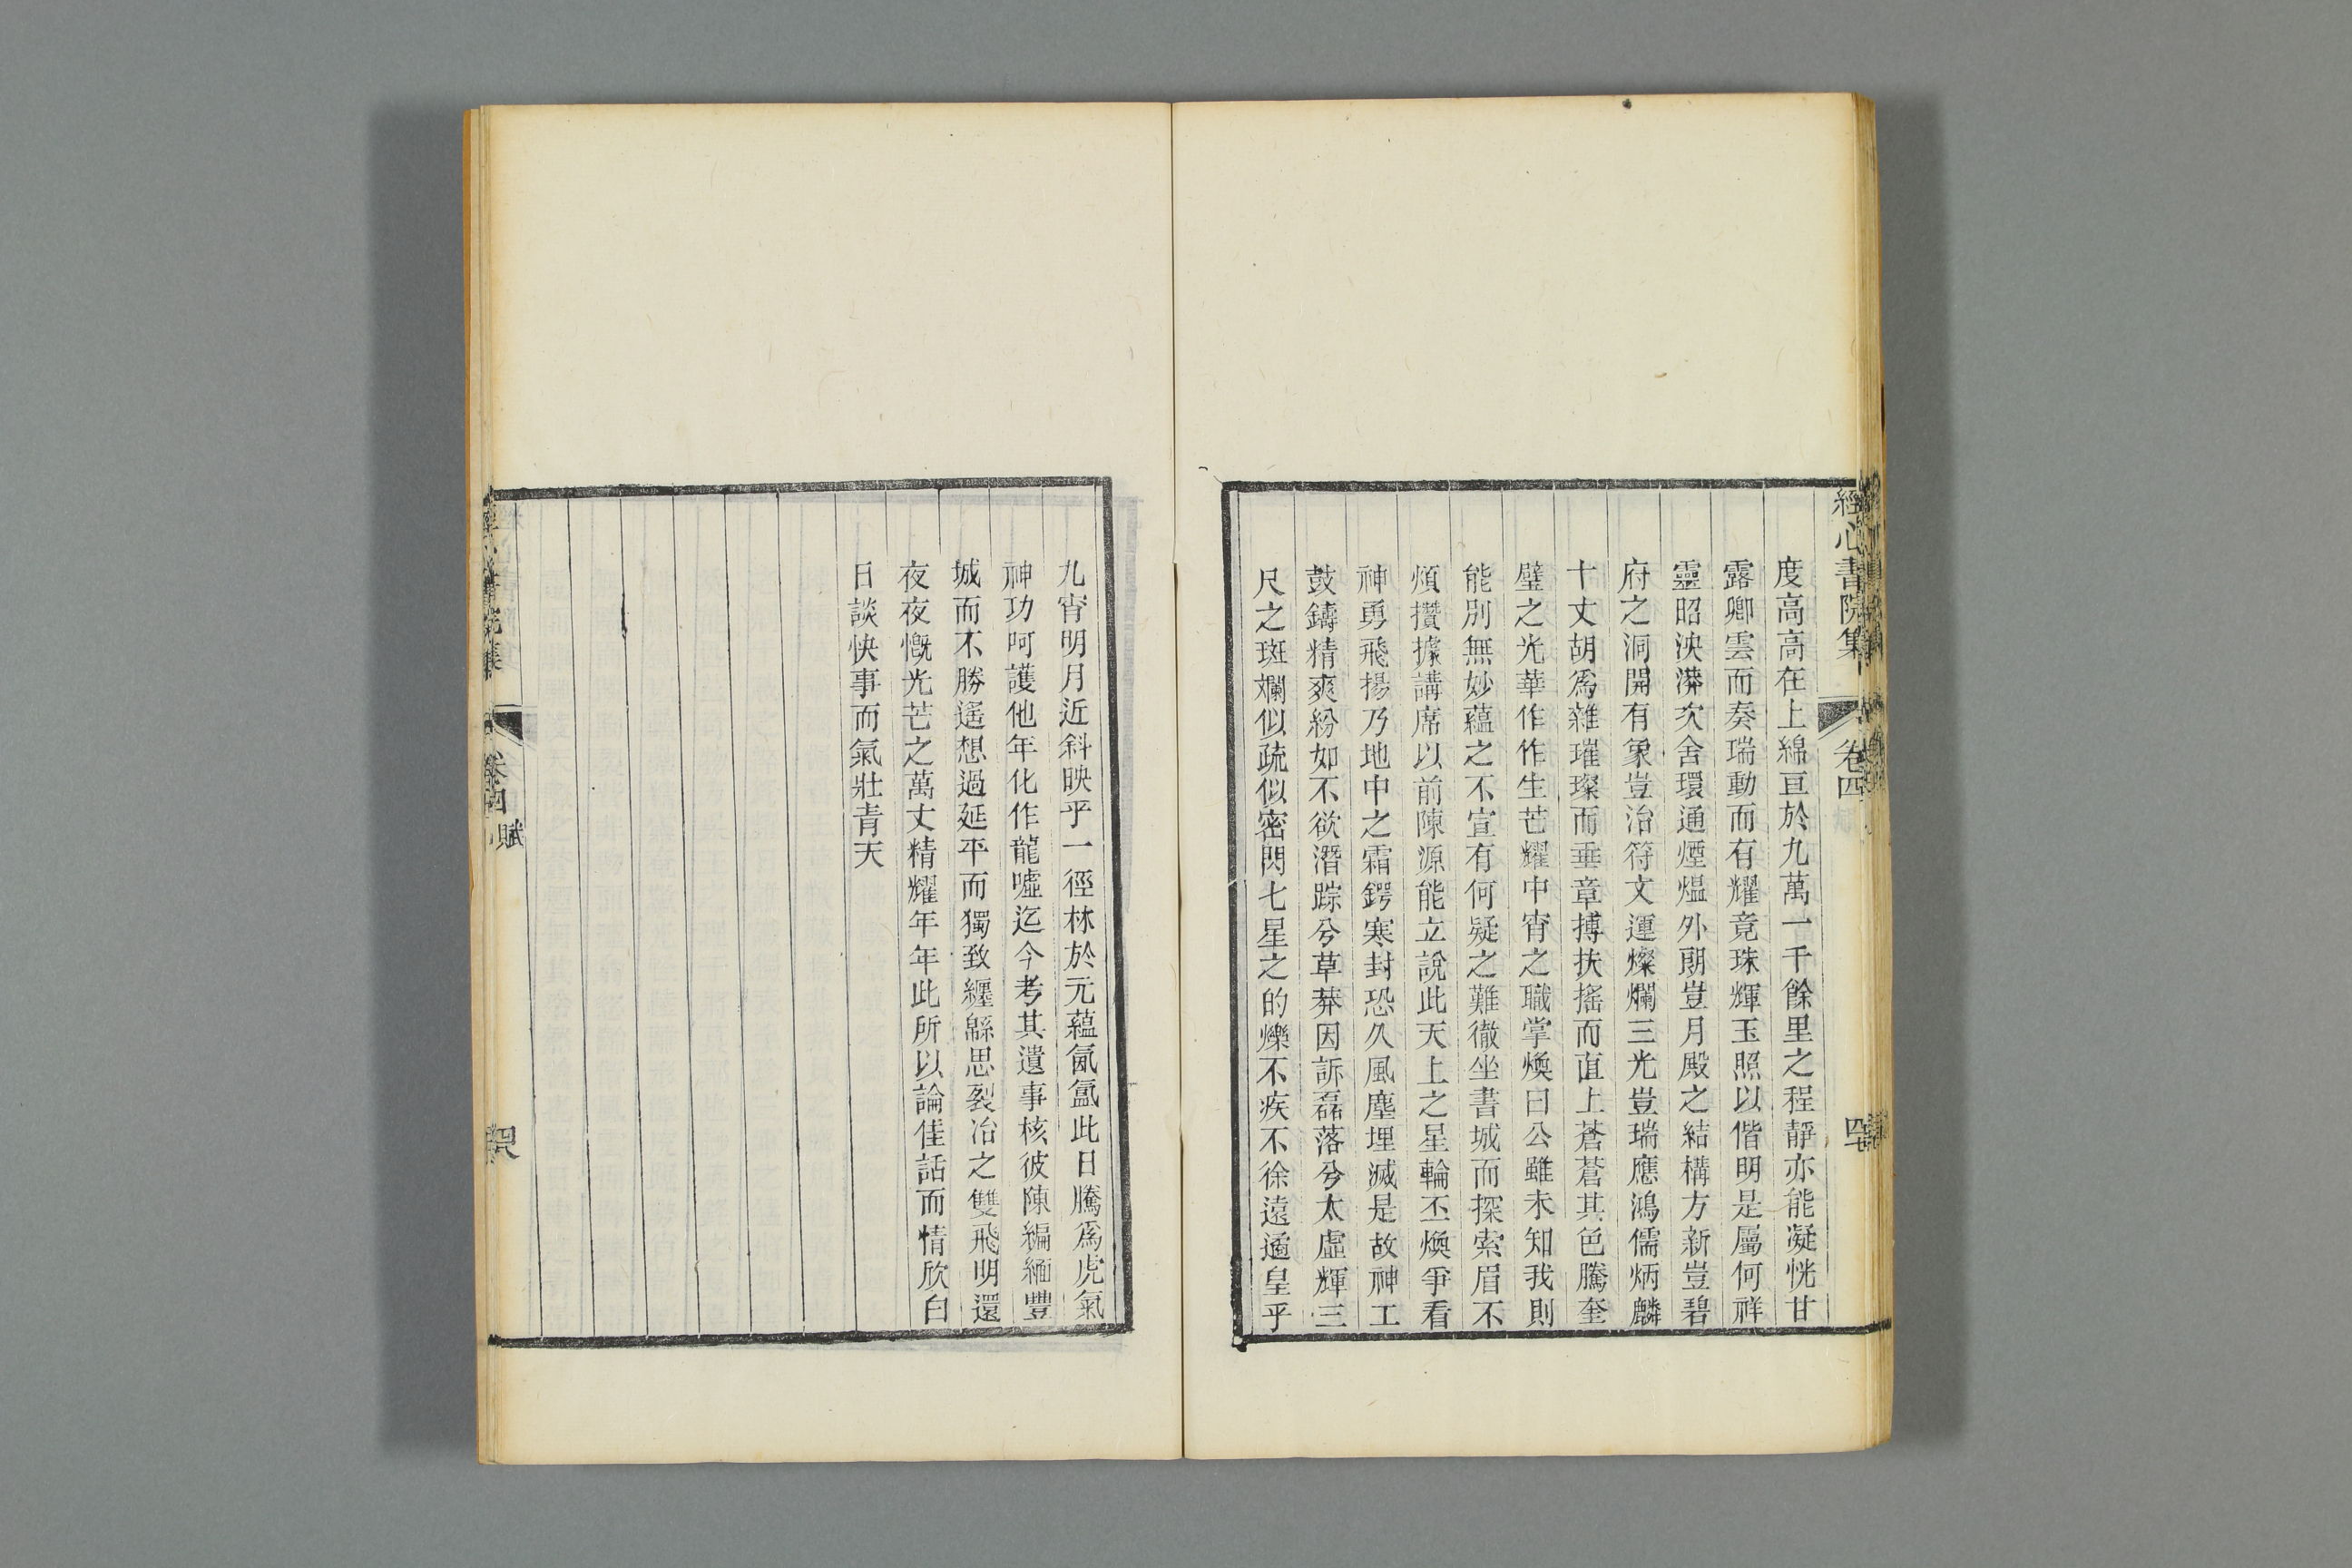 經心書院集
卷四
度高高在上綿亘於九萬一千餘里之程靜亦能凝恍甘
露卿雲而奏瑞動而有耀竟珠輝玉照以偕明是屬何祥
靈昭泱漭次舍環通煙熅外朗豈月殿之結構方新豈碧
府之洞開有象豈治符文運燦爛三光豈瑞應鴻儒炳麟
十丈胡爲雜璀璨而垂章搏扶搖而直上蒼蒼其色騰奎
壁之光華作作生芒耀中宵之職掌煥曰公雖未知我則
能別無妙蘊之不宣有何疑之難徹坐書城而探索眉不
煩攢據講席以前陳源能立說此天上之星輪丕煥爭看
神勇飛揚乃地中之霜鍔寒封恐久風塵埋滅是故神工
鼓鑄精爽紛如不欲潛踪兮草莽因訴磊落兮太虛輝三
尺之斑斕似疏似密閃七星之的爍不疾不徐遠逼皇乎
九宵明月近斜映乎一徑林於元蘊氤氳此日騰爲虎氣
神功呵護他年化作龍噓迄今考其遺事核彼陳編緬豐
城而不勝遙想過延平而獨致纏緜思裂冶之雙飛明還
夜夜慨光芒之萬丈精耀年年此所以論佳話而情欣白
日談快事而氣壯青天
卷四
賦